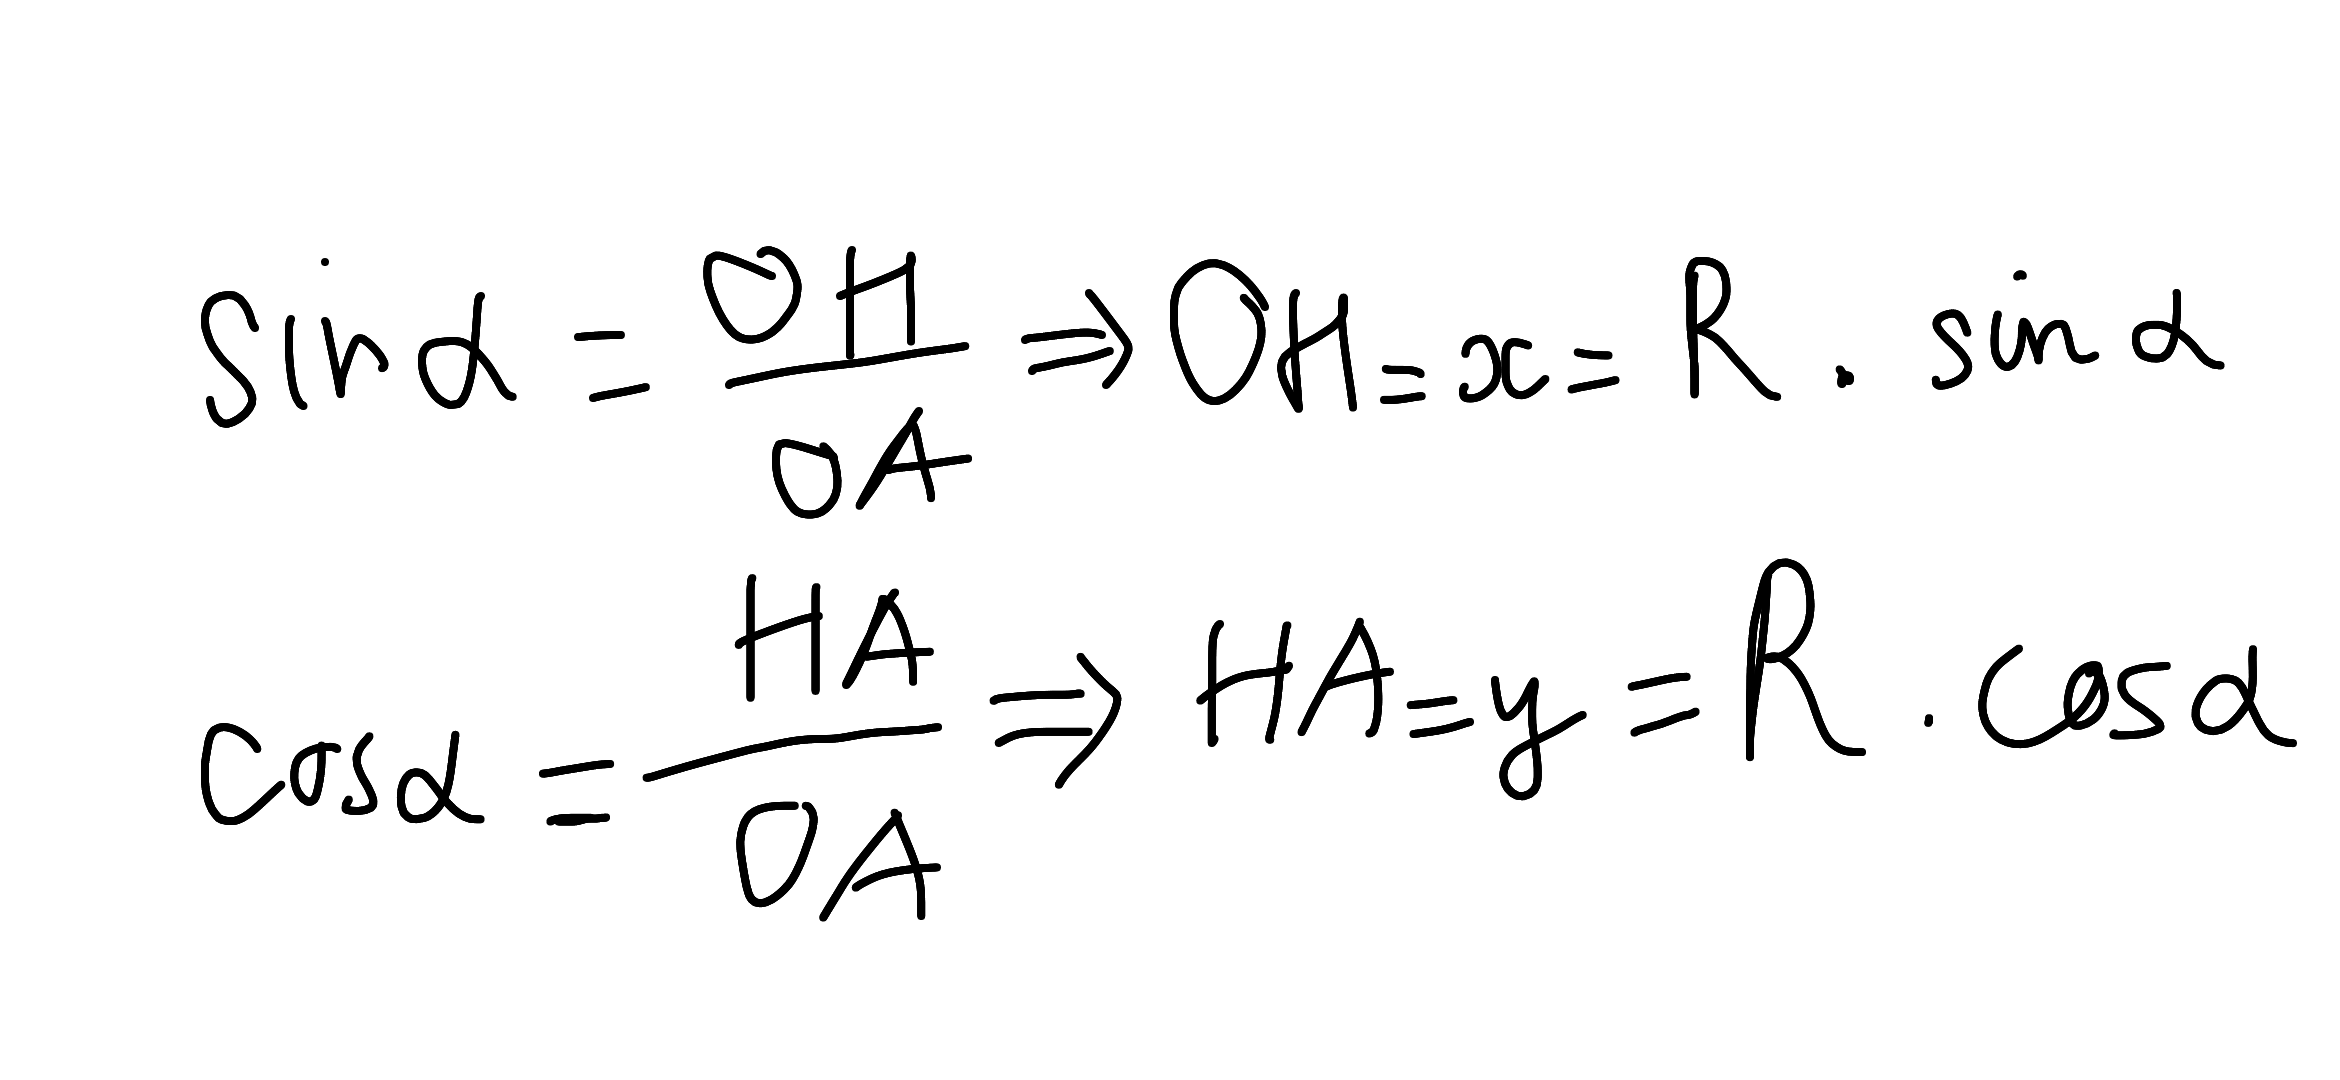 sin α = OH / OA ⇒ OH = x = R . sin α
cos α = HA / OA ⇒ HA = y = R . cos α